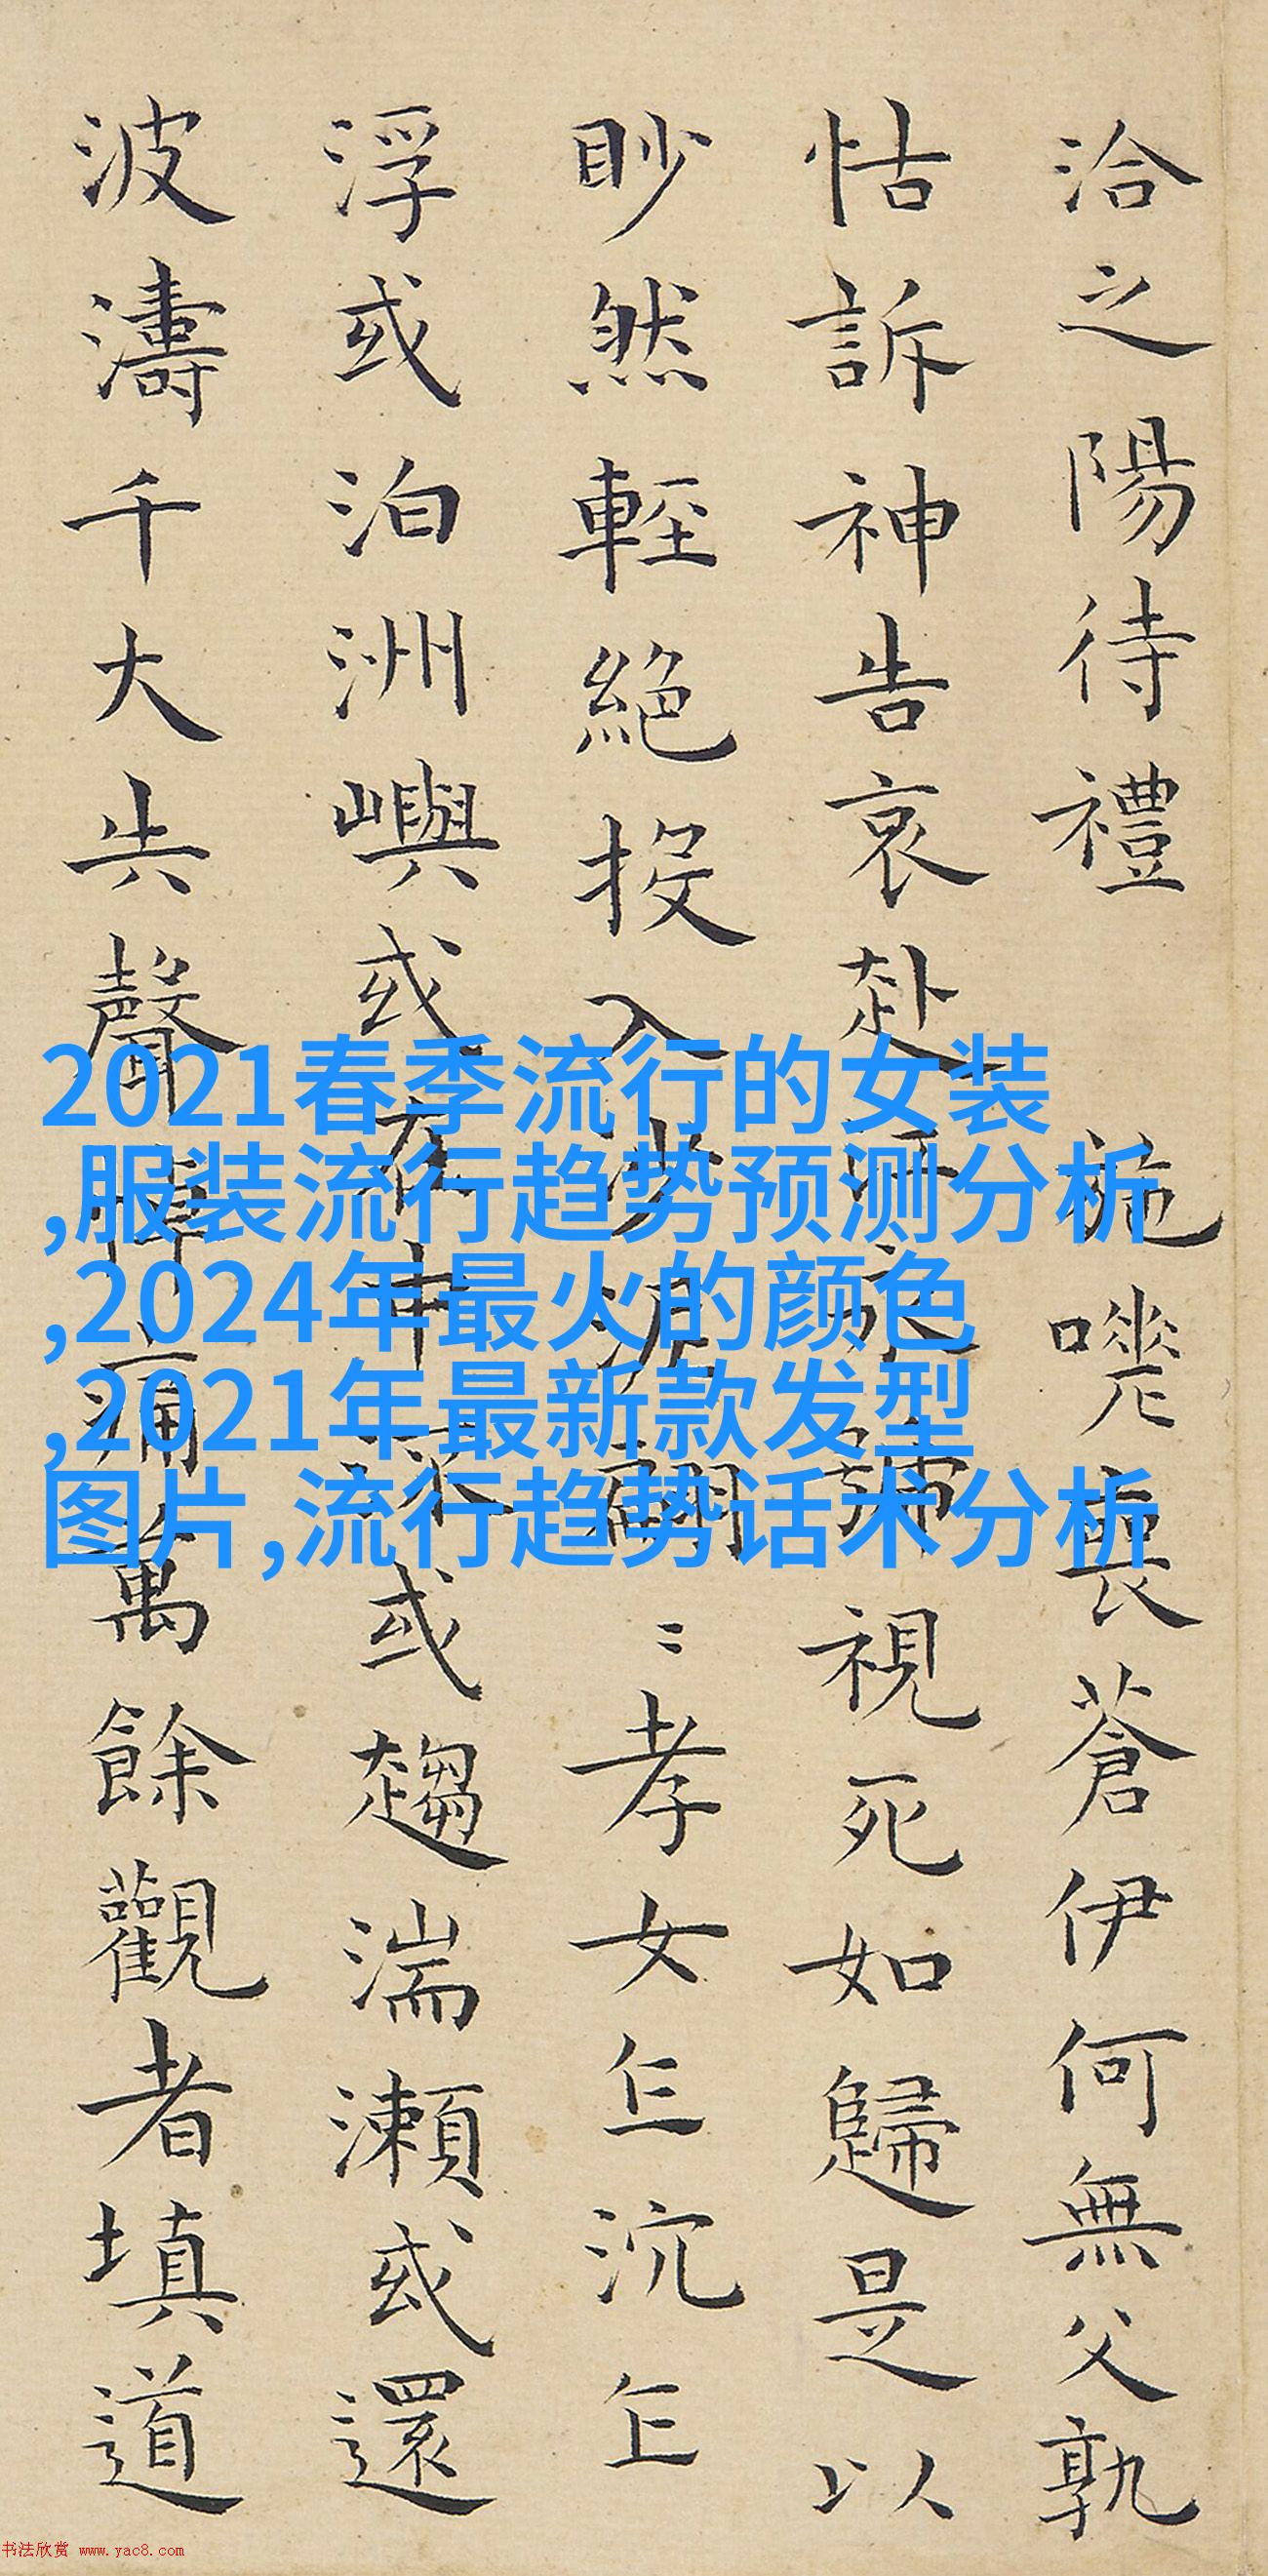 洽之陽待禮 施嗟喪蒼伊何無父孰
怙訴神告哀赴江永號視死如歸是以
眇然輕絕投入沙泥翩〻孝女乍沉乍
浮或泊洲嶼或在中流或趨湍瀨或還
波濤千大失聲悼痛萬餘觀者填道
2021春季流行的女装
,服装流行趋势预测分析
,2024年最火的颜色
,2021年最新款发型
图片,流行趋势话术分析
书法欣赏 www.yac8.com